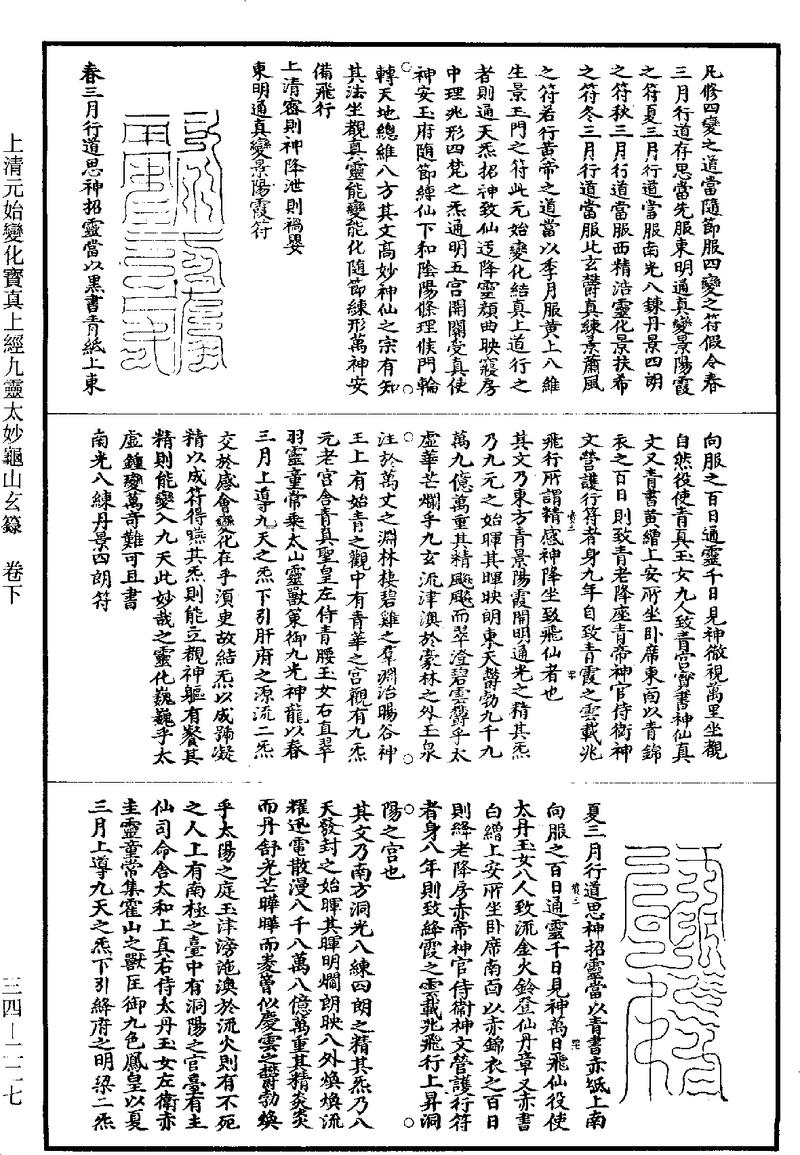 凡修四變之道當隨節服四變之符假令春
三月行道存思當先服東明通真變景陽霞
之符夏三月行道當服南光八鍊丹景四朗
之符秋三月行道當服西精浩靈化景扶希
之符冬三月行道當服北玄鬱真練景蕭風
之符若行黃帝之道當以季月服黃上八維
生景玉門之符此元始變化結真上道行之
者則通天炁招神致仙迂降靈顏曲映寢房
中理兆形四梵之炁通明五宮開闡受真使
神安玉府隨節縛仙下和陰陽條理候門輪
轉天地總維八方其文高妙神仙之宗有知
其法坐觀真靈能變能化隨節練形萬神安
備飛行
上清密則神降泄則禍嬰
東明通真變景陽霞符
春三月行道思神招靈當以黑書青紙上東
向服之百日通靈千日見神徹視萬里坐觀
自然役使青真玉女九人致青宮寶書神仙真
文又青書黃繒上安所坐臥席東向以青錦
衣之百日則致青老降座青帝神官侍衛神
文營護行符者身九年自致青霞之雲載兆
飛行所謂精感神降坐致飛仙者也
其文乃東方青景陽霞開明通光之精其炁
乃九元之始暉其暉映朗東天鬱勃九千九
萬九億萬重其精飈飈而翠澄碧雲鬱乎太
虛華芒爛乎九玄流津澳於豪林之外玉泉
注於萬丈之淵林棲碧雞之羣淵治暘谷神
王上有始青之觀中有青華之宮觀有九炁
元老宮含青真聖皇左侍青腰玉女右直翠
羽靈童常乘太山靈獸策御九光神龍以春
三月上導九天之炁下引肝府之源流二炁
交於感會變化在乎須臾故結炁以成蹄凝
精以成符得嚥其炁則能立觀神軀有餐其
精則能變入九天此妙哉之靈化巍巍乎太
虛鍾變萬奇難可具書
南光八練丹景四朗符
夏三月行道思神招靈當以青書赤紙上南
向服之百日通靈千日見神萬日飛仙役使
太丹玉女八人致流金火鈴登仙丹章又赤書
白繒上安所坐臥席南向以赤錦衣之百日
則絳老降房赤帝神官侍衛神文營護行符
者身八年則致絳霞之雲載兆飛行上昇洞
陽之宮也
其文乃南方洞光八練四朗之精其炁乃八
天發封之始暉其暉明爛朗映八外煥煥流
耀迅電散漫八千八萬八億萬重其精炎炎
而丹舒光芒曄曄而菱曾似慶雲之鬱勃煥
乎太陽之庭玉津滂沲澳於流火則有不死
之人上有南極之臺中有洞陽之宮臺有主
仙司命含太和上真右侍太丹玉女左衛赤
圭靈童常集霍山之獸匡御九色鳳皇以夏
三月上導九天之炁下引絳府之明梁二炁
上清元始變化寶真上經九靈太妙龜山玄籙　卷下
三四—二二七